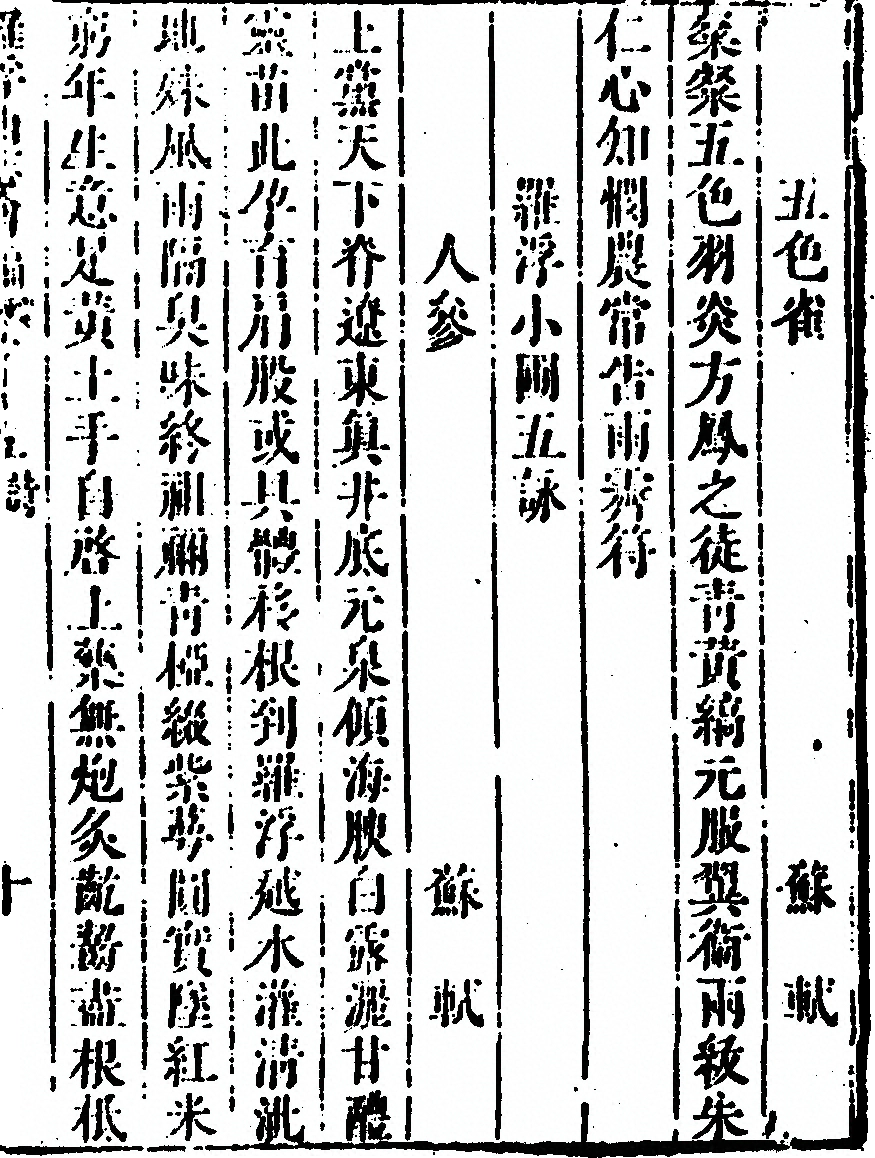 五色雀 蘇軾
粲粲五色羽炎方鳳之徒青黃縞元服翼衛兩紱朱
仁心知憫農常告雨霽符
羅浮小圃五詠
人參 蘇軾
上黨天下脊遼東真井底元泉傾海腴白露灑甘醴
靈苗此孕育肩股或具體移根到羅浮越水灌清泚
地殊風雨隔臭味終祖禰青椏綴紫萼圓實墮紅米
窮年生意足黃土手自啓上藥無炮炙齕齧盡根柢
詩
十